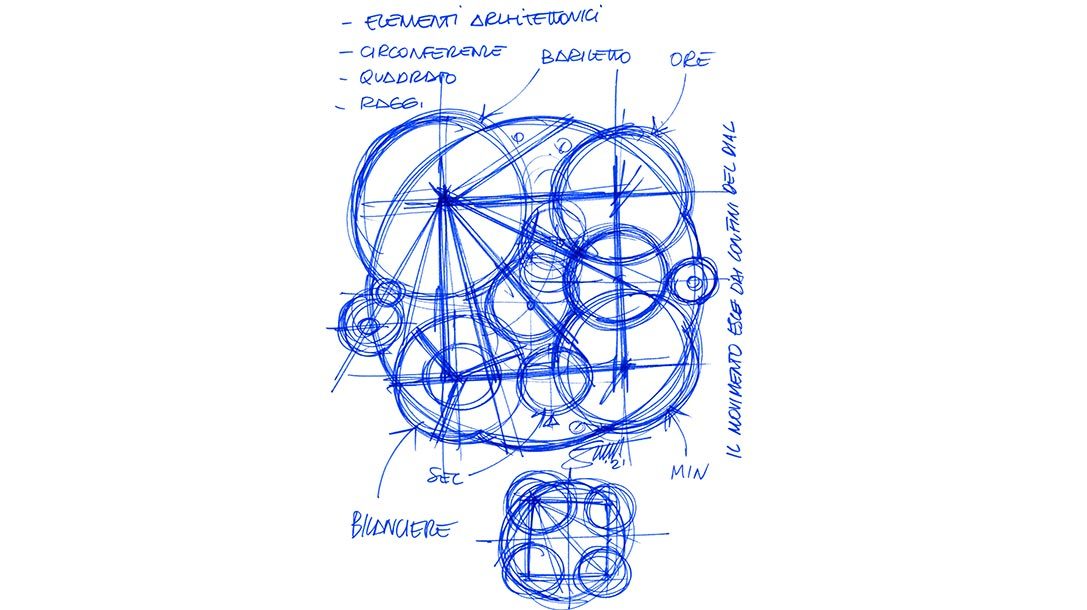 - ELEMENTI ARCHITETTONICI
- CIRCONFERENZE
- QUADRATO
- RAGGI
BARILETTO
ORE
IL MOVIMENTO ESCE DAI CONFINI DEL DIAL
SEC
MIN
BILANCIERE